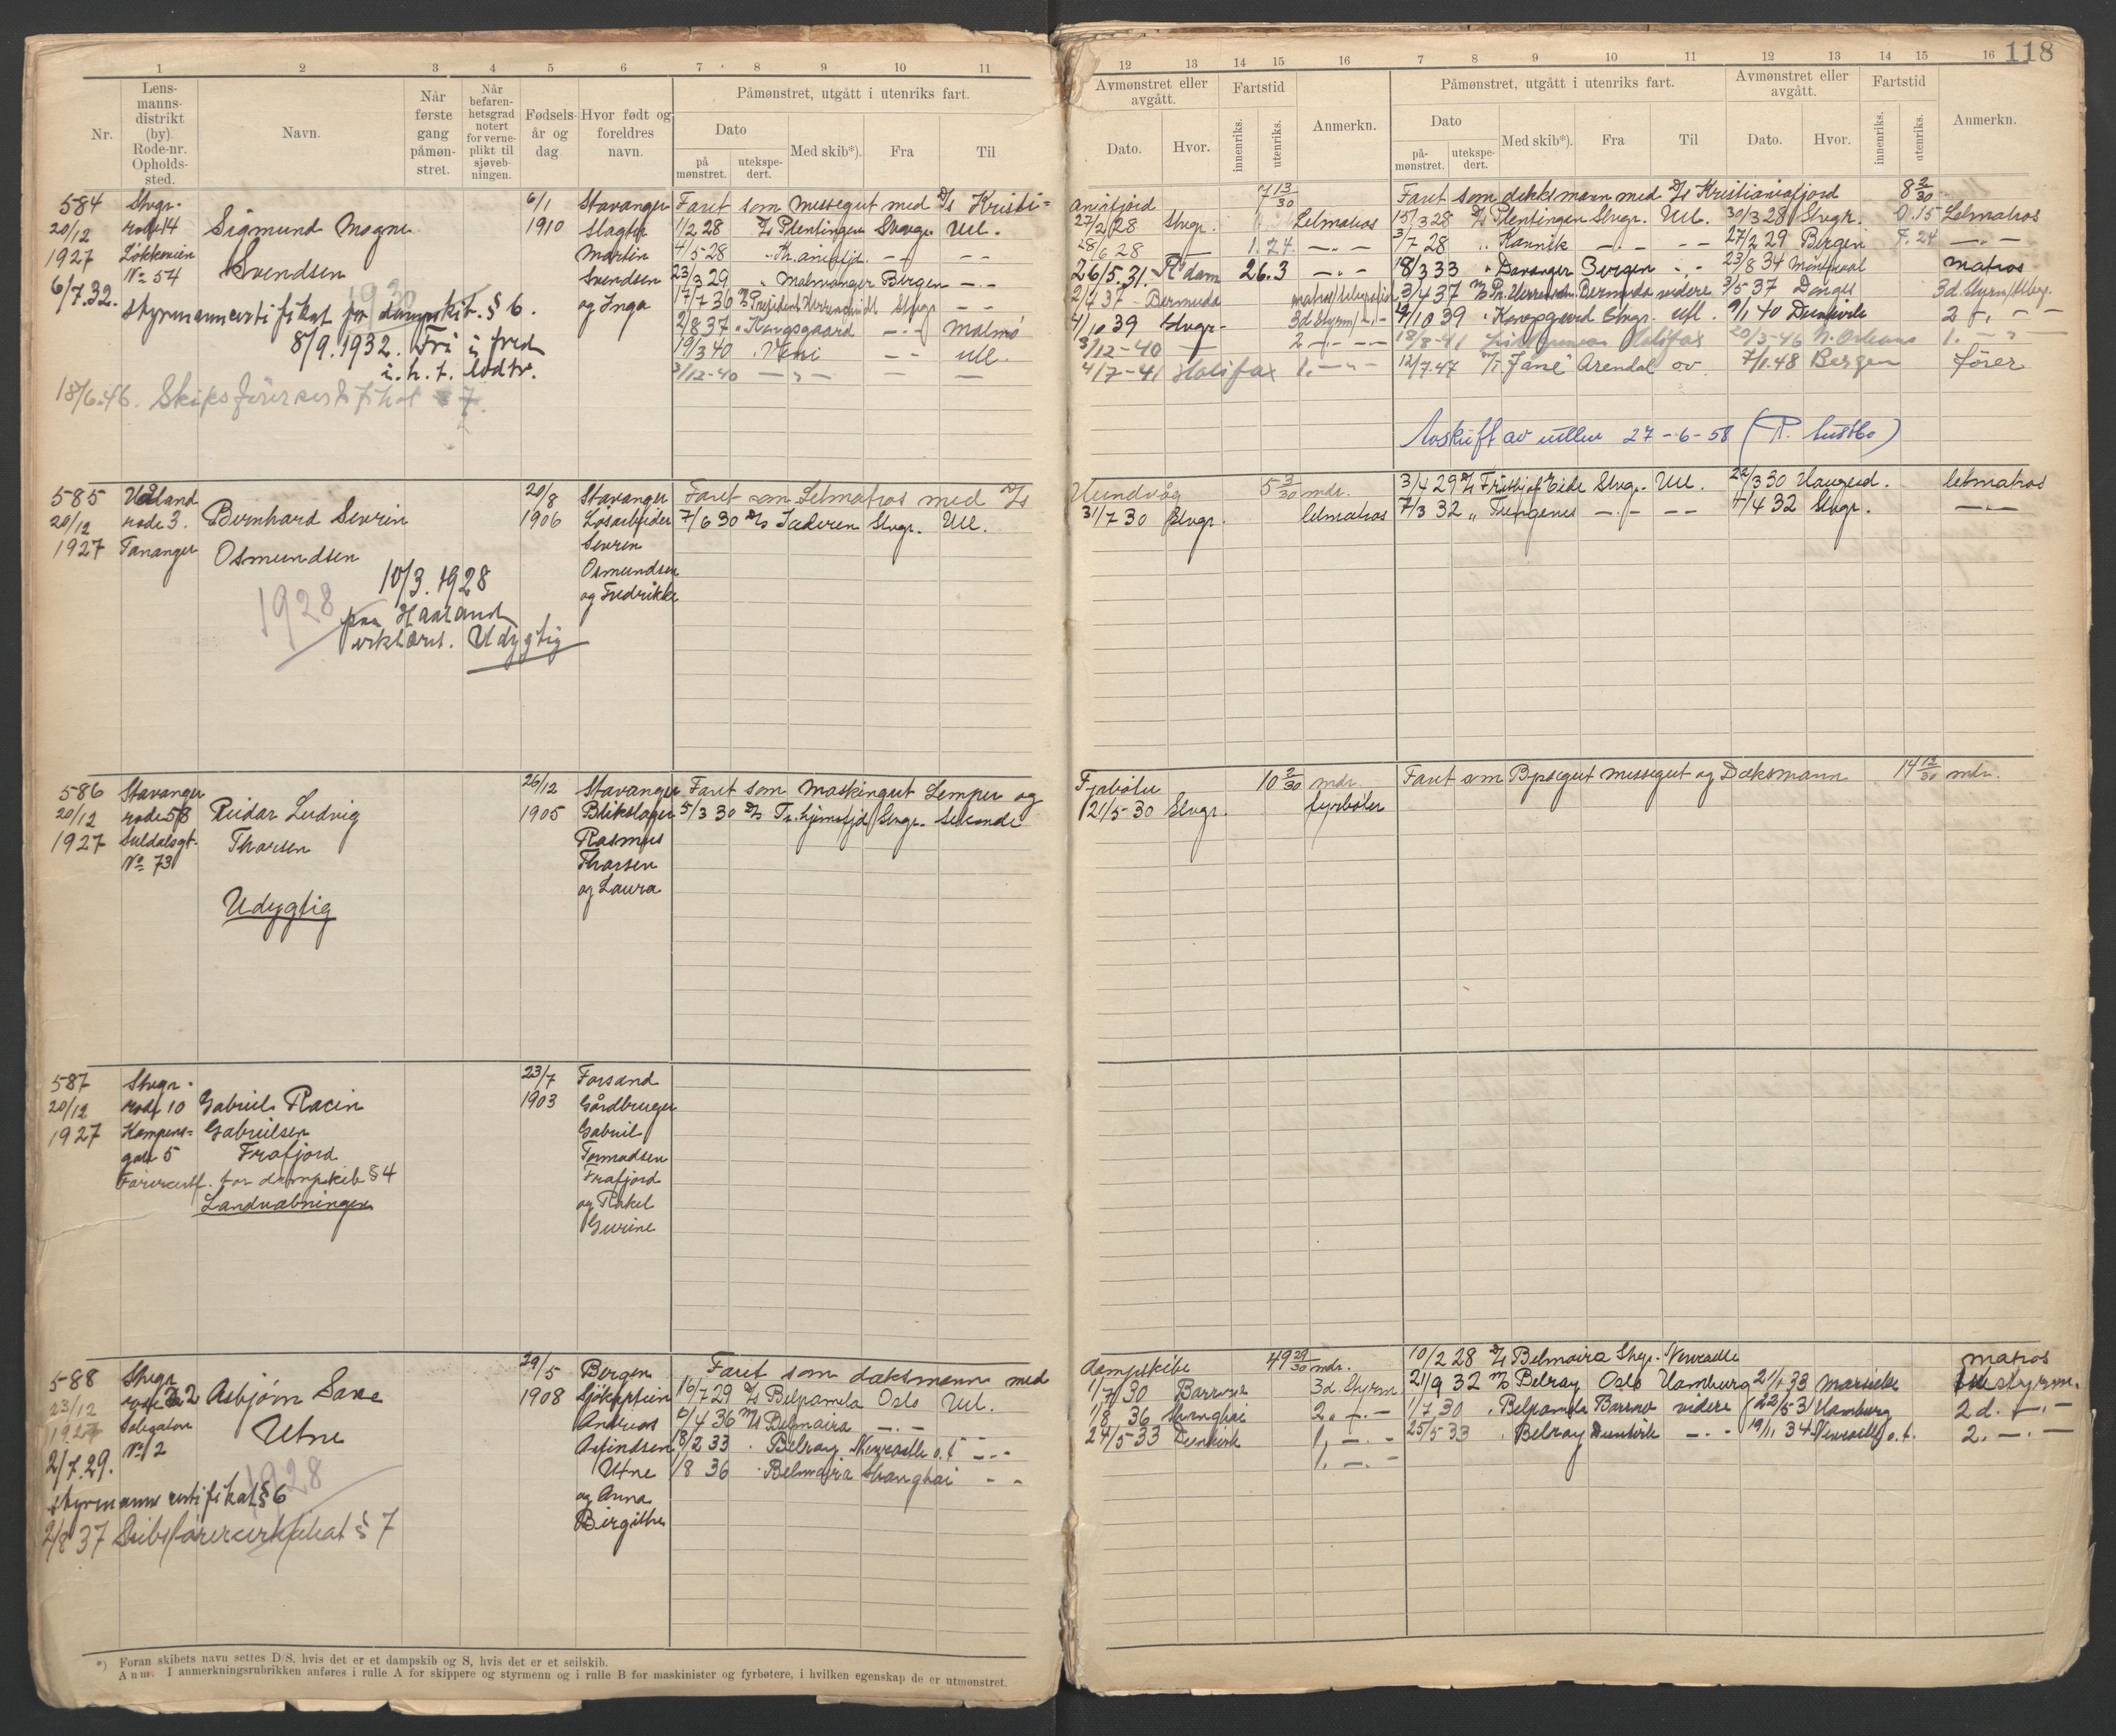 118
1 2 3 4 5 6 7 8 9 10 11
12 13 14 15 16 7 8 9 10 11 12 13 14 15 16
Nr.
Lens-
manns-
distrikt
(by).
Rode-nr.
Opholds-
sted.
Navn.
Når
første
gang
påmøn-
stret.
Når
befaren-
hetsgrad
notert
for verne-
plikt til
sjøveb-
ningen.
Fødsels-
år og
dag
Hvor født og
foreldres
navn.
Påmønstret, utgått i utenriks fart.
Dato
på
mønstret.
utekspe-
dert.
Med skib*).
Fra
Til
Avmønstret eller
avgått.
Dato.
Hvor.
Fartstid
innenriks.
utenriks.
Anmerkn.
Påmønstret, utgått i utenriks fart.
Dato
på-
mønstret.
utekspe-
dert.
Med skib*).
Fra
Til
Avmønstret eller
avgått.
Dato.
Hvor.
Fartstid
innenriks.
utenriks.
Anmerkn.
584
20/12
1927
6/7.32.
Stvgr.
rode 14
Nº 54
Sigmund Mogne
Svendsen
1930
styrmanncertifikat for dampsk. § 6.
8/9.1932. Fri i fred
i.h.t. lodtr.
18/6.46. Skipsførercertifikat § 7.
6/1
1910
Stavanger
Slagter
Martin
Svendsen
og Inga
Faret som messegut med D/s Kristi=
1/2 28 D/s Plentingen Stavgr. Utl.
4/5 28 " Kr.aniafjd. — —
23/3 29 " Malmanger Bergen —
17/7 36 M/s President Herrenschmidt Stvgr — —
2/8 37 " Kongsgaard — Malmö
19/3 40 " Veni — utl.
3/12-40 — " — — —
aniafjord 7 13/30
27/2 28 Stvgr. Letmatros
28/6 28 — 1.24 — " —
26/5.31. R'dam 26.3 — " —
2/4 37 Bermuda
4/10 39 Stvgr. 3d Styrm
3/12-40 — 2 — " —
4/7-41 Halifax 1. — " —
Faret som dekksmann med D/s Kristianiafjord 8 2/30
15/3 28 D/s Plentingen Stvgr. Utl. 30/3 28 Stvgr. 0.15 Letmatros
3/7 28 " Kannik — " — — 27/2 29 Bergen 7.24 — " —
18/3 33 " Davanger Bergen — " — 23/8 34 Montreal matros
3/4 37 Bermuda videre 3/5 37
9/10 39 " Stvgr. utl. 9/1 40 2 — " —
18/8-41 Halifax 20/3-46 N. Orleans 1. — " —
12/7.47 "Jane" Arendal ov. 7/1.48 Bergen fører
Avskrift av rullen 27-6-58
585
20/12
1927
Håland
rode 3.
Tananger
Bernhard Severin
Osmundsen
1928
10/3.1928
paa Haaland
erklært. Udygtig
20/8
1906
Stavanger
Løsarbeider
Severin
Osmundsen
og Fredrikke
Faret som Letmatros med D/s
7/6 30 D/s Jæderen Stvgr. Utl.
Hundvåg 5 3/30 mdr.
31/7 30 Stvgr. letmatros
3/4 29 D/s Fridtjof Eide Stvgr. Utl. 22/3 30 Haugesd. letmatros
7/3 32 " Tungenes — " — — 4/4 32 Stvgr. — " —
586
20/12
1927
Stavanger
rode 58
Suldalsgt.
Nº 73
Reidar Ludvig
Thorsen
Udygtig
26/12
1905
Stavanger
Blikslager
Rasmus
Thorsen
og Laura
Faret som Maskingut Lemper og
5/3 30 D/s Stvgr.
Fyrbøter 10 2/30 mdr.
21/5-30 Stvgr. fyrbøter
Faret som Byssegut messegut og Dæksmann 14 12/30 mdr.
587
20/12
1927
Stvgr.
rode 10
Kampens=
gate 5
Gabriel Racin
Gabrielsen
Frafjord
Førercertf. for dampskib § 4
Landvæbningen
23/7
1903
Forsand
Gårdbruger
Gabriel
Tormodsen
Frafjord
og Rakel
Gurine
588
23/12
1927
2/7.29.
Stvgr.
rode 22
Nº 2
Asbjørn Saxe
Utne
1928
styrmanns certifikat § 6
2/8 37 Skibsførercertifikat § 7
29/5
1908
Bergen
Sjökaptein
Andreas
Asfindsen
Utne
og Anna
Birgithe
Faret som dæksmann med
16/7 29 D/s Belpamela Oslo Utl.
6/4 36 M/s Belmoira — " —
8/2 33 " Belray Newcastle o.t — " —
1/8 36 " Belmoira Shanghai — "
dampskibe 49 29/30 mdr.
1/7 30 Barrow 3d. Styrm
1/8 36 Shanghai 2. — " —
24/5-33 Dunkirk 1. — " —
1. — " —
10/2 28 D/s Belmoira Stvgr. Newcastle matros
21/9 32 M/s Belray Oslo Hamburg 21/1 33 Marseille styrm.
1/7 30 " Belpamela Barrow videre Hamburg 2d. — " —
25/5 33 " Belray Dunkirk — " — 19/1 34 Newcastle o.t. 2. — " —
*) Foran skibets navn settes D/S. hvis det er et dampskib og S, hvis det er et seilskib.
Anm. I anmerkningsrubrikken anføres i rulle A for skippere og styrmenn og i rulle B for maskinister og fyrbøtere, i hvilken egenskap de er utmønstret.